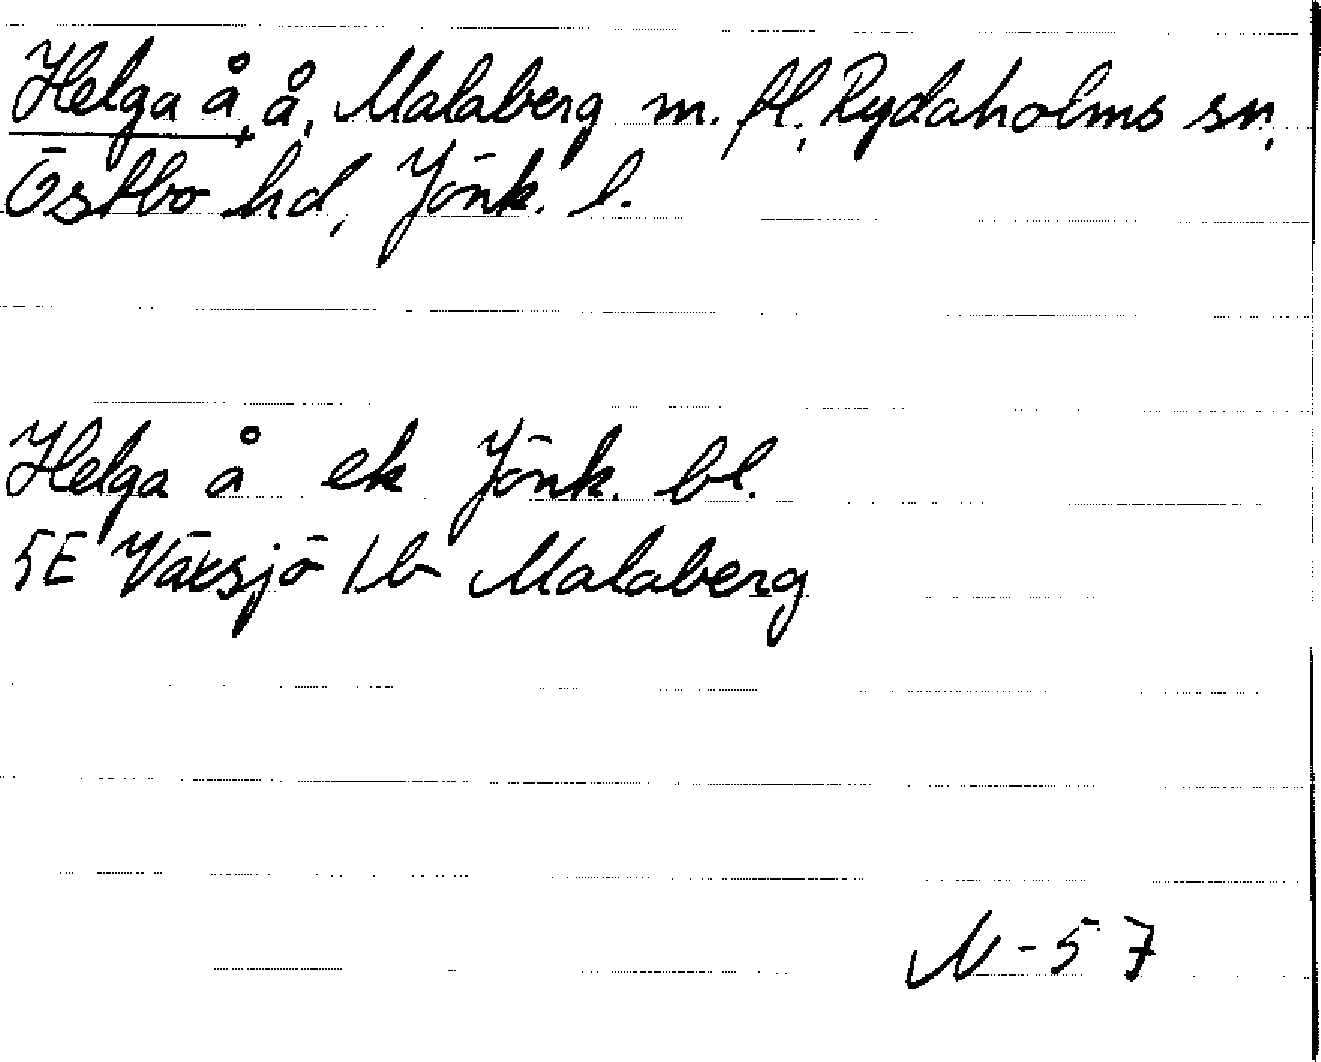 Helga å, å, Malaberg m. fl., Rydaholms sn,
Östbo hd, Jönk. l.
Helga å ek Jönk. bl.
5E Växsjö 1b Malaberg
N-57